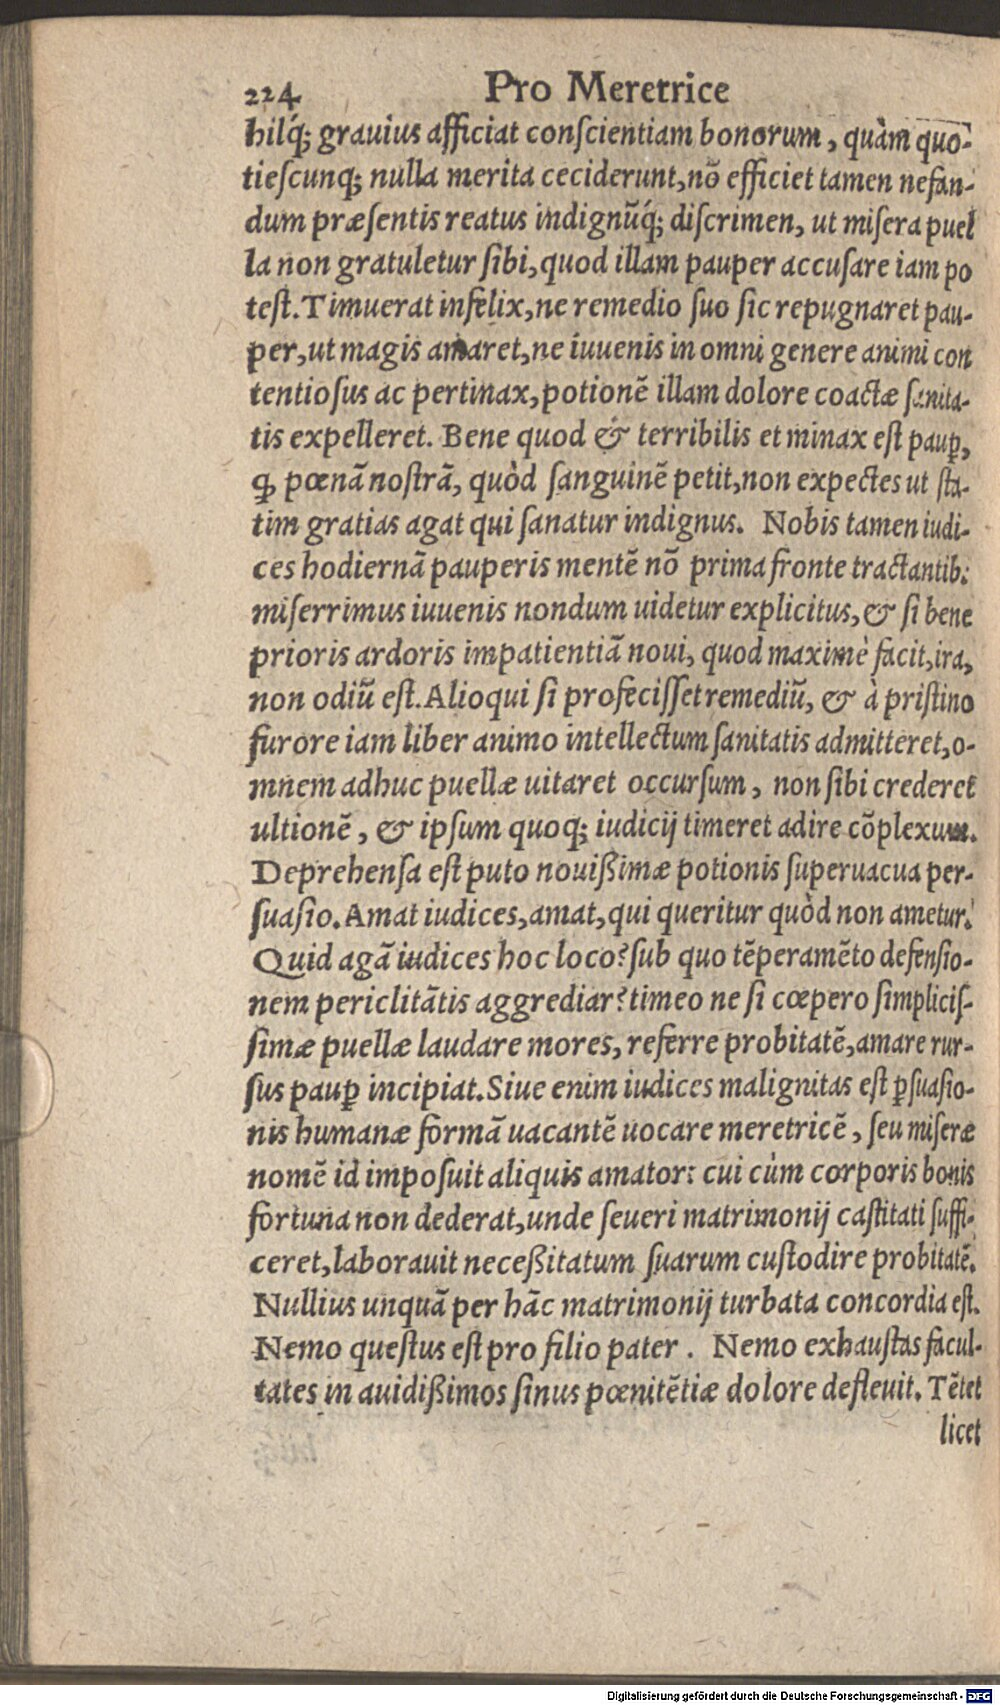 224 Pro Meretrice
hilq́; grauius afficiat conſcientiam bonorum, quàm quo-
tieſcunq; nulla merita ceciderunt, nõ efficiet tamen nefan-
dum præſentis reatus indignũq́; diſcrimen, ut miſera puel
la non gratuletur ſibi, quod illam pauper accuſare iam po
teſt. Timuerat infelix, ne remedio ſuo ſic repugnaret pau-
per, ut magis amaret, ne iuuenis in omni genere animi con
tentioſus ac pertinax, potionẽ illam dolore coactæ ſanita-
tis expelleret. Bene quod & terribilis et minax eſt paup̱,
ꝙ pœnã noſtrã, quòd ſanguinẽ petit, non expectes ut ſta-
tim gratias agat qui ſanatur indignus. Nobis tamen iudi-
ces hodiernã pauperis mentẽ nõ prima fronte tractantib:
miſerrimus iuuenis nondum uidetur explicitus, & ſi bene
prioris ardoris impatientiã noui, quod maximè facit, ira,
non odiũ eſt. Alioqui ſi profeciſſet remediũ, & à priſtino
furore iam liber animo intellectum ſanitatis admitteret, o-
mnem adhuc puellæ uitaret occurſum, non ſibi crederet
ultionẽ, & ipſum quoq; iudicij timeret adire cõplexum.
Deprehenſa eſt puto nouißimæ potionis ſuperuacua per-
ſuaſio. Amat iudices, amat, qui queritur quòd non ametur.
Quid agã iudices hoc loco? ſub quo tẽperamẽto defenſio-
nem periclitãtis aggrediar? timeo ne ſi cœpero ſimpliciſ-
ſimæ puellæ laudare mores, referre probitatẽ, amare rur-
ſus paup̱ incipiat. Siue enim iudices malignitas eſt p̱ſuaſio-
nis humanæ formã uacantẽ uocare meretricẽ, ſeu miſeræ
nomẽ id impoſuit aliquis amator: cui cùm corporis bonis
fortuna non dederat, unde ſeueri matrimonij caſtitati ſuffi-
ceret, laborauit neceßitatum ſuarum cuſtodire probitatẽ.
Nullius unquã per hãc matrimonij turbata concordia eſt.
Nemo queſtus eſt pro filio pater. Nemo exhauſtas facul-
tates in auidißimos ſinus pœnitẽtiæ dolore defleuit. Tẽtet
licet
Digitalisierung gefördert durch die Deutsche Forschungsgemeinschaft - DFG